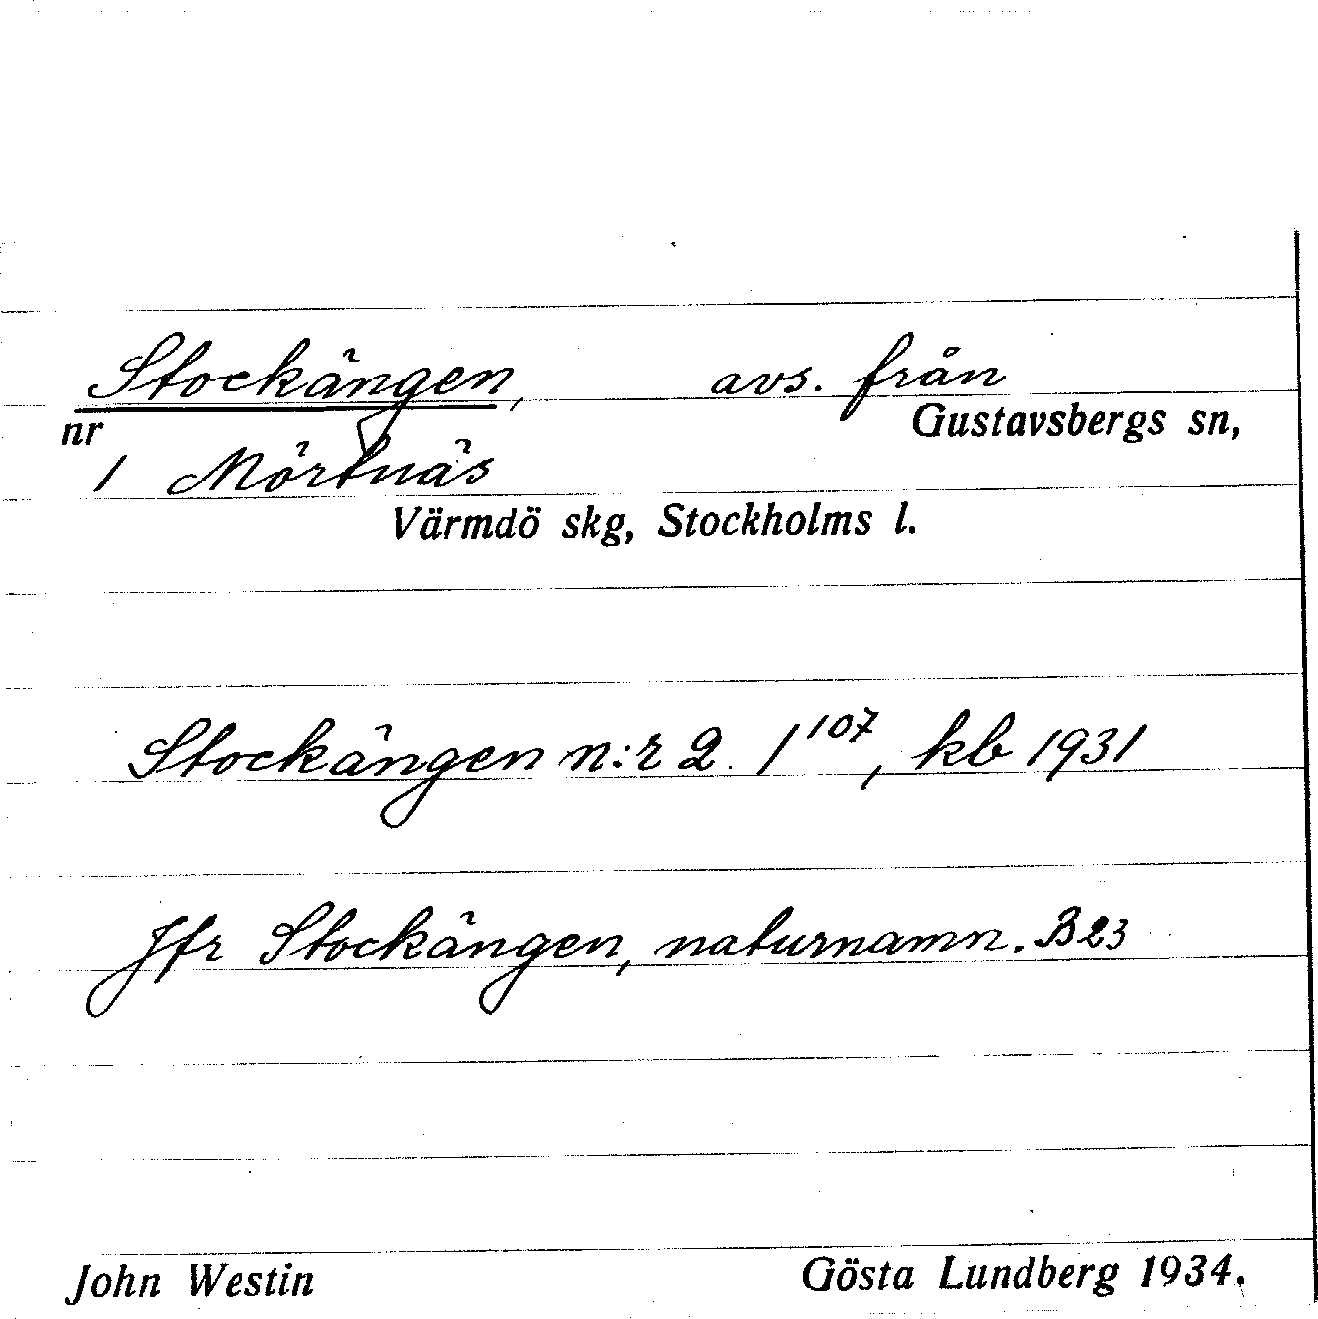 Stockängen, avs. från
nr Gustavsbergs sn,
1 Mörtnäs
Värmdö skg, Stockholms l.
Stockängen n:r 2. 1¹⁰⁷, kb 1931
Jfr Stockängen, naturnamn. B23
John Westin Gösta Lundberg 1934.